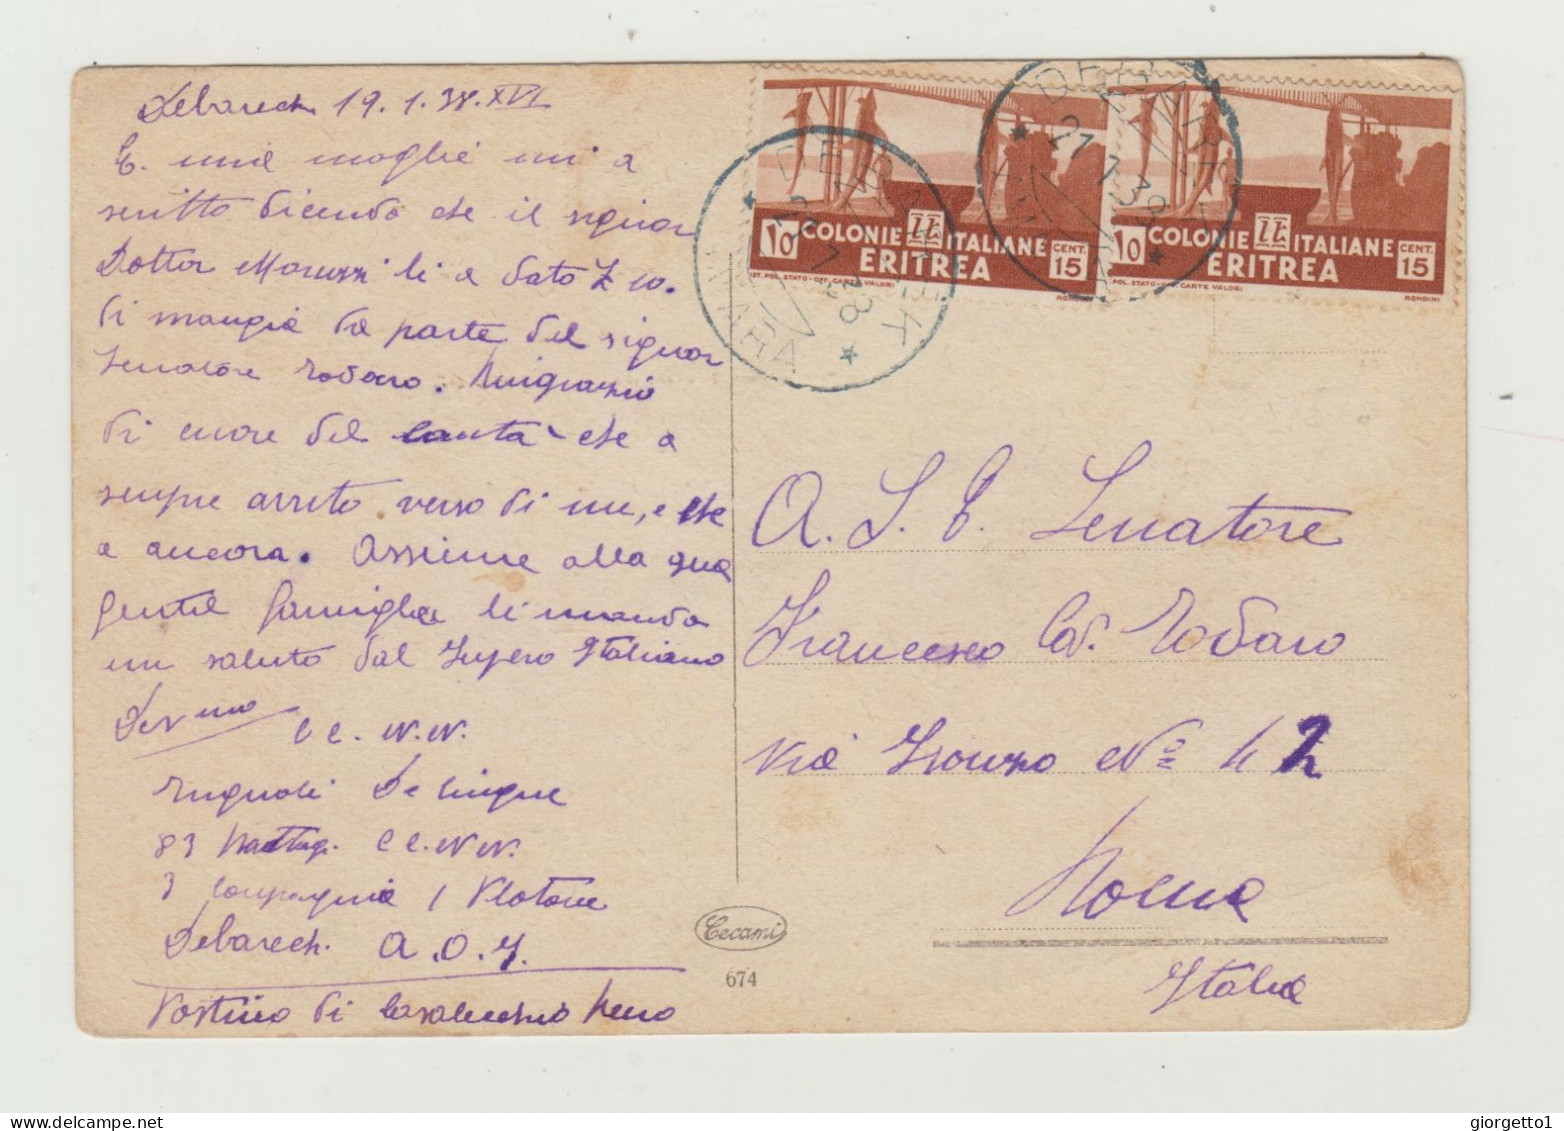 Debarech 19.1.38.XVI
E. mia moglie mi a
scritto dicendo che il signor
Dottor Moruzzi li a dato £ 10.
di mangia da parte del signor
Senatore Rodaro. Ringrazzio
di cuore del bontà che a
sempre avuto verso di me, e che
a ancora. Assieme alla sua
gentil famiglia li manda
un saluto dal Impero Italiano
Dev mo
CC. N.N.
De Cinque
83 Battag. CC.N.N.
3 Compagnia 1 Plotone
Debarech. A.O.I.
Postino di Casalecchio Reno
DEBARK
21 1 38
AMARA
DEBARK
21 1 38
10 COLONIE ITALIANE CENT. 15
ERITREA
IST. POL. STATO-OFF. CARTE VALORI
RONDINI
10 COLONIE ITALIANE CENT. 15
ERITREA
POL. STATO-OFF. CARTE VALORI
RONDINI
A. S. E. Senatore
Francesco Cav. Rodaro
Via Isonzo No 42
Roma
Italia
Cecami
674
giorgetto1